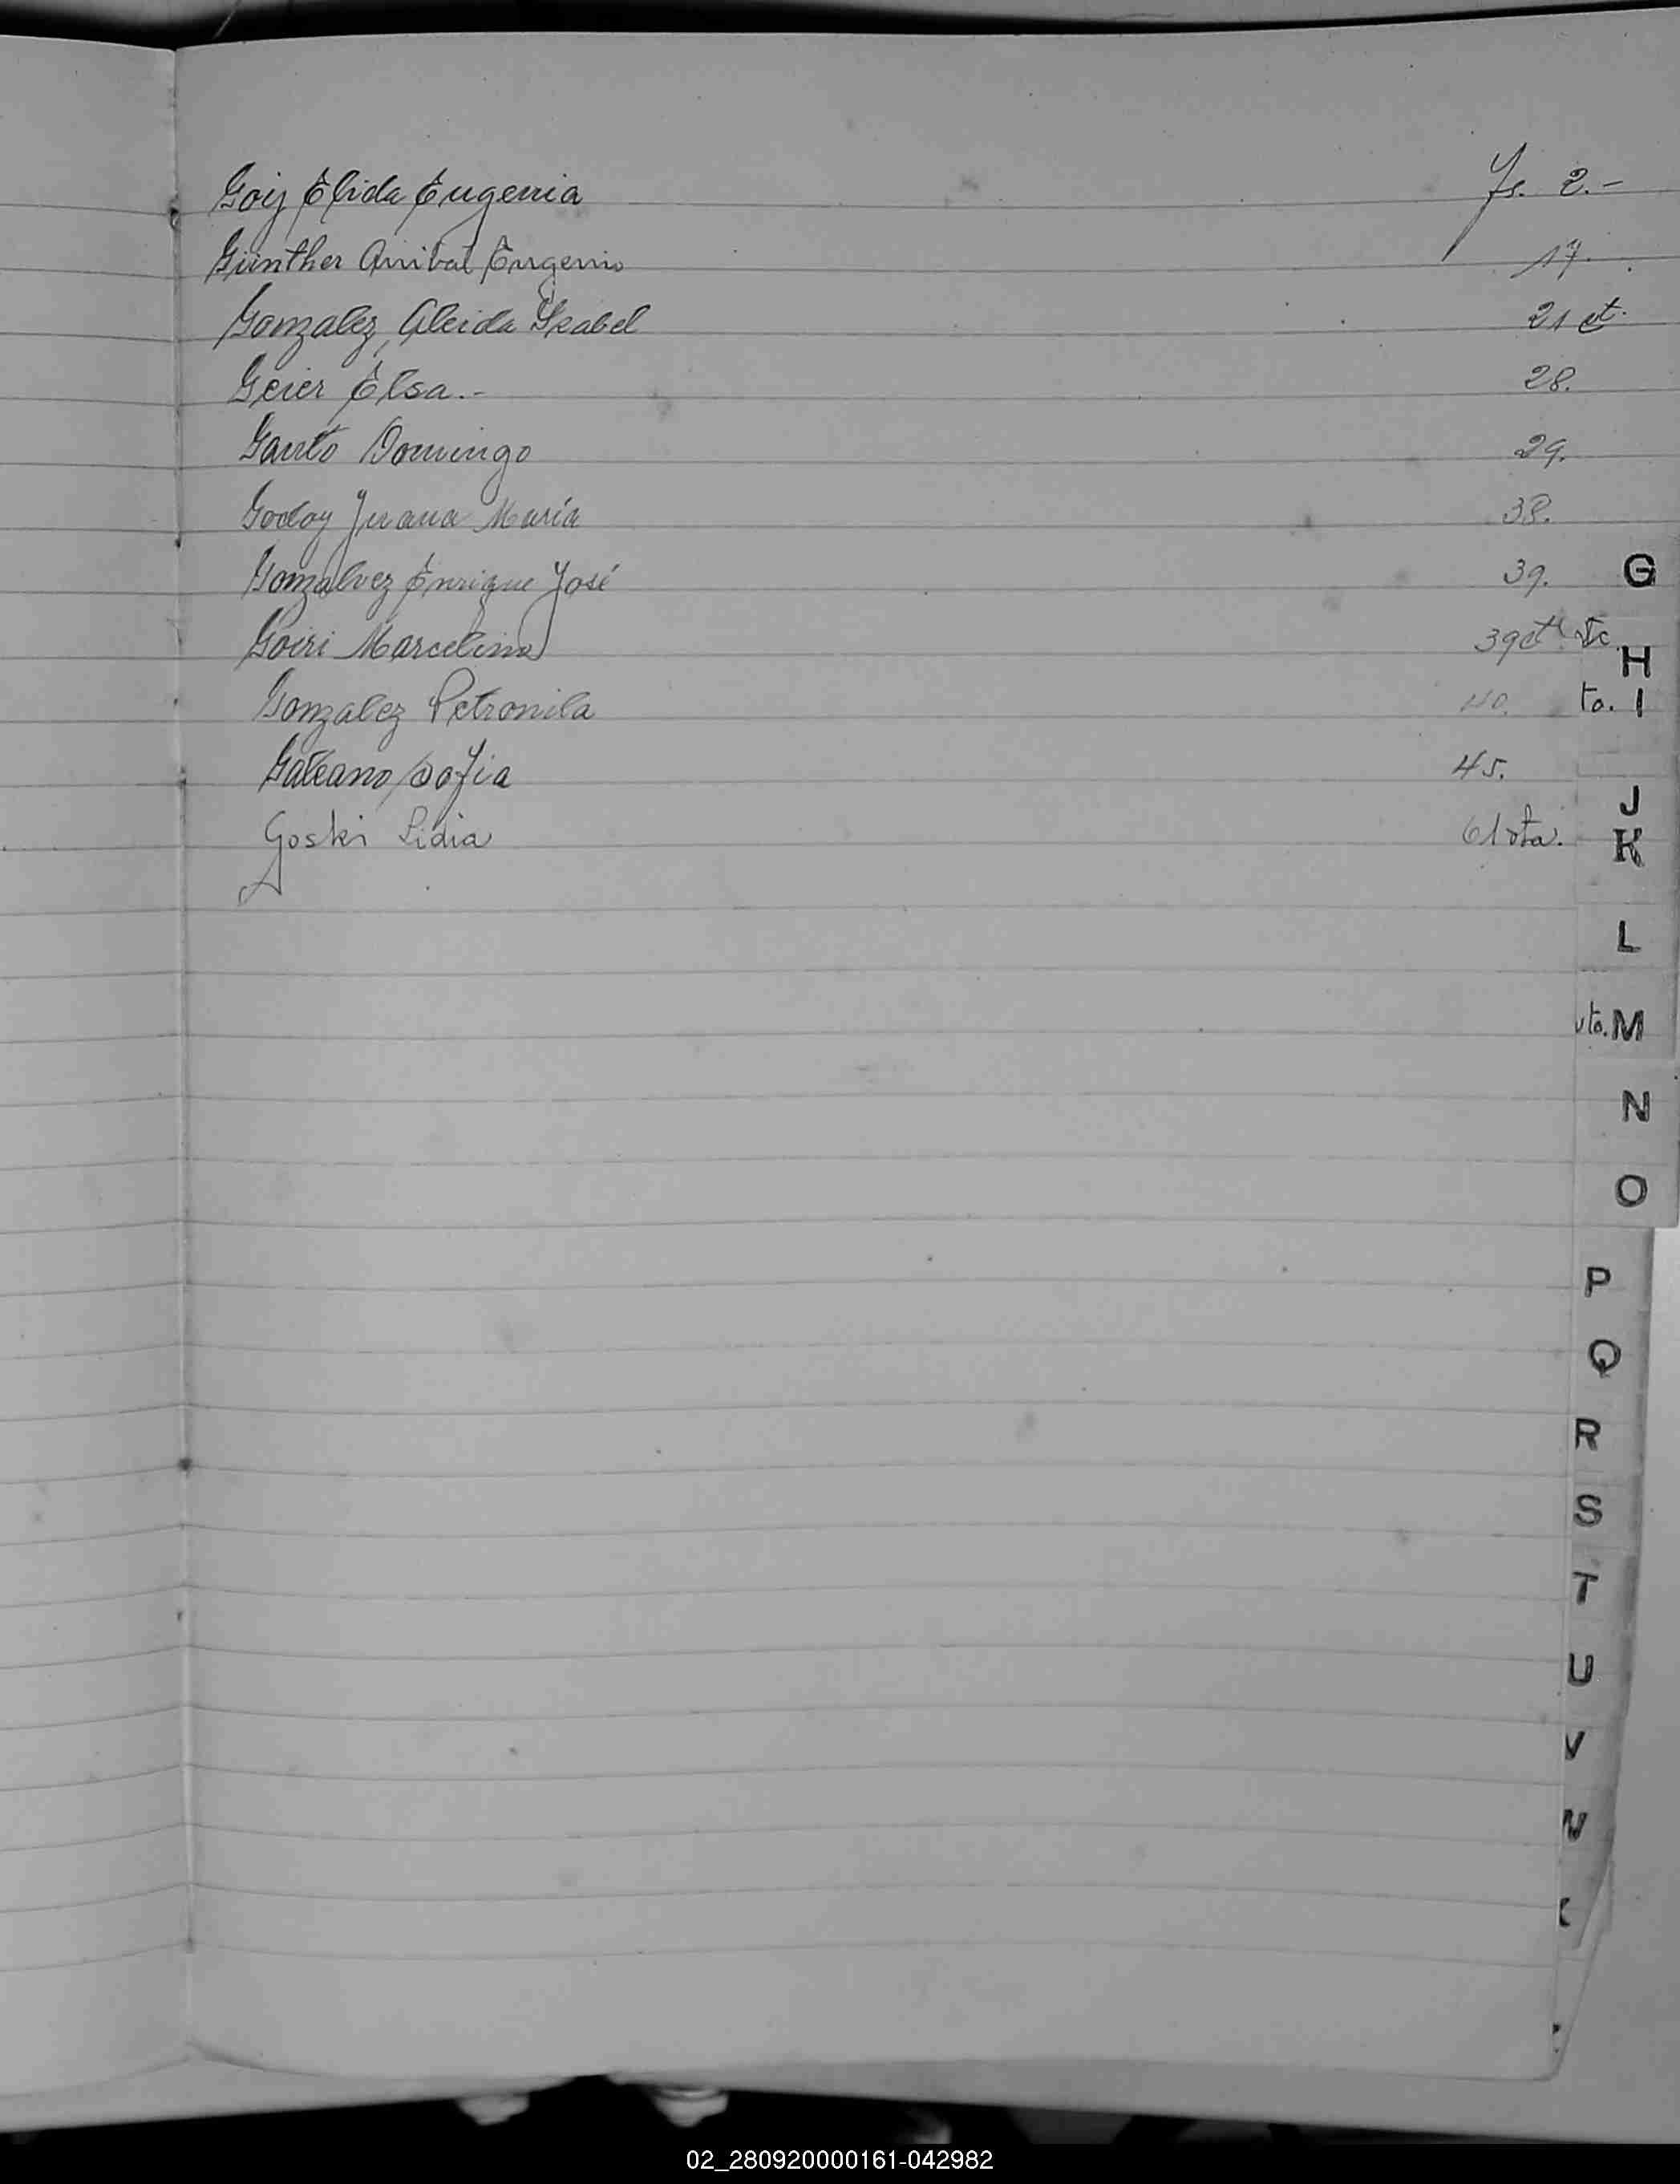 Goij Elida Eugenia fs. 2.-
Günther Anibal Eugenio 17.
Gonzalez, Aleida Isabel 21 vt.
Geier Elsa.- 28.
Gauto Domingo 29.
Godoy Juana María 38.
Gonzalvez Enrique José 39.
Goiri Marcelino 39
Gonzalez Petronila 40.
Galeano Sofia 45.
Goski Lidia 61 vta.
to.
vta.
G
H
I
J
K
L
M
N
O
P
Q
R
S
T
U
V
02_280920000161-042982